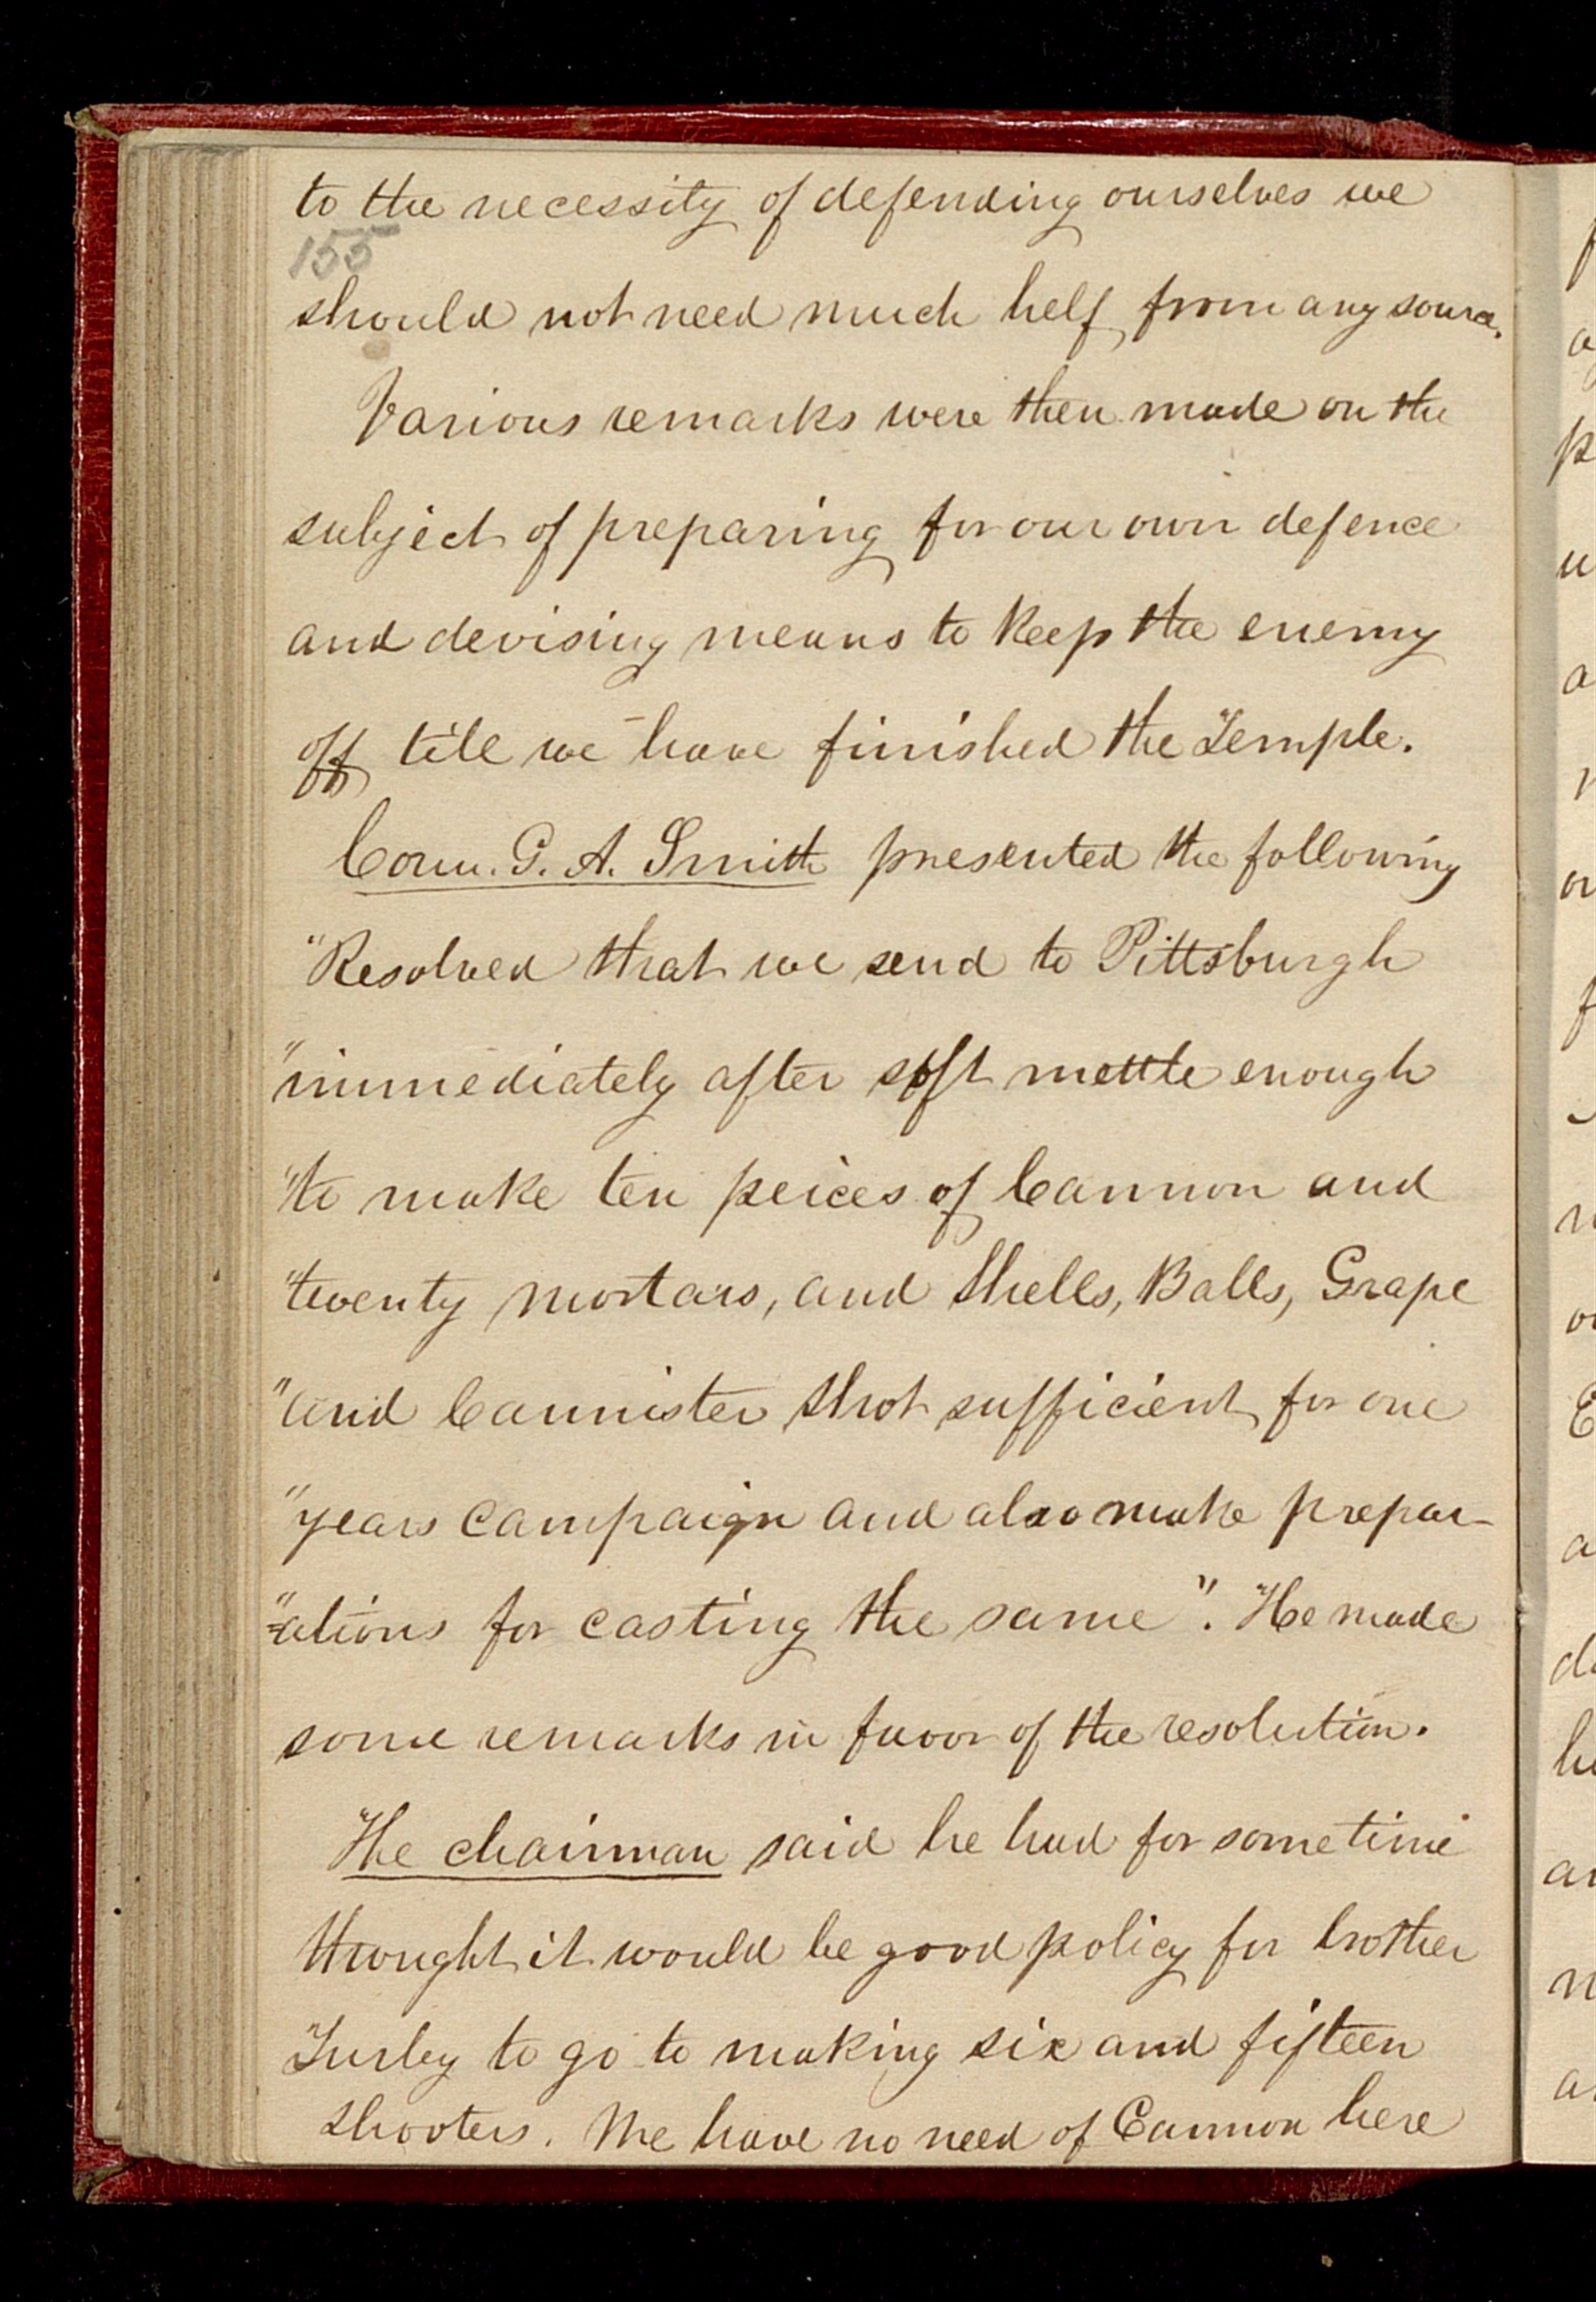 to the necessity of defending ourselves we
155
should not need much helf from any source.
Various remarks were then made on the
subject of preparing for our own defence
and devising means to keep the enemy
off till we have finished the Temple.
Coun. G. A. Smith presented the following
"Resolved that we send to Pittsburgh
"immediately after soft mettle enough
"to make ten peices of Cannon and
"twenty mortars, and Shells, Balls, Grape
"and Cannister Shot sufficient for one
"years campaign and also make prepar-
"=ations for casting the same". He made
some remarks in favor of the resolution.
The chairman said he had for sometime
thought it would be good policy for brother
Turley to go to making six and fifteen
shooters. We have no need of Cannon here